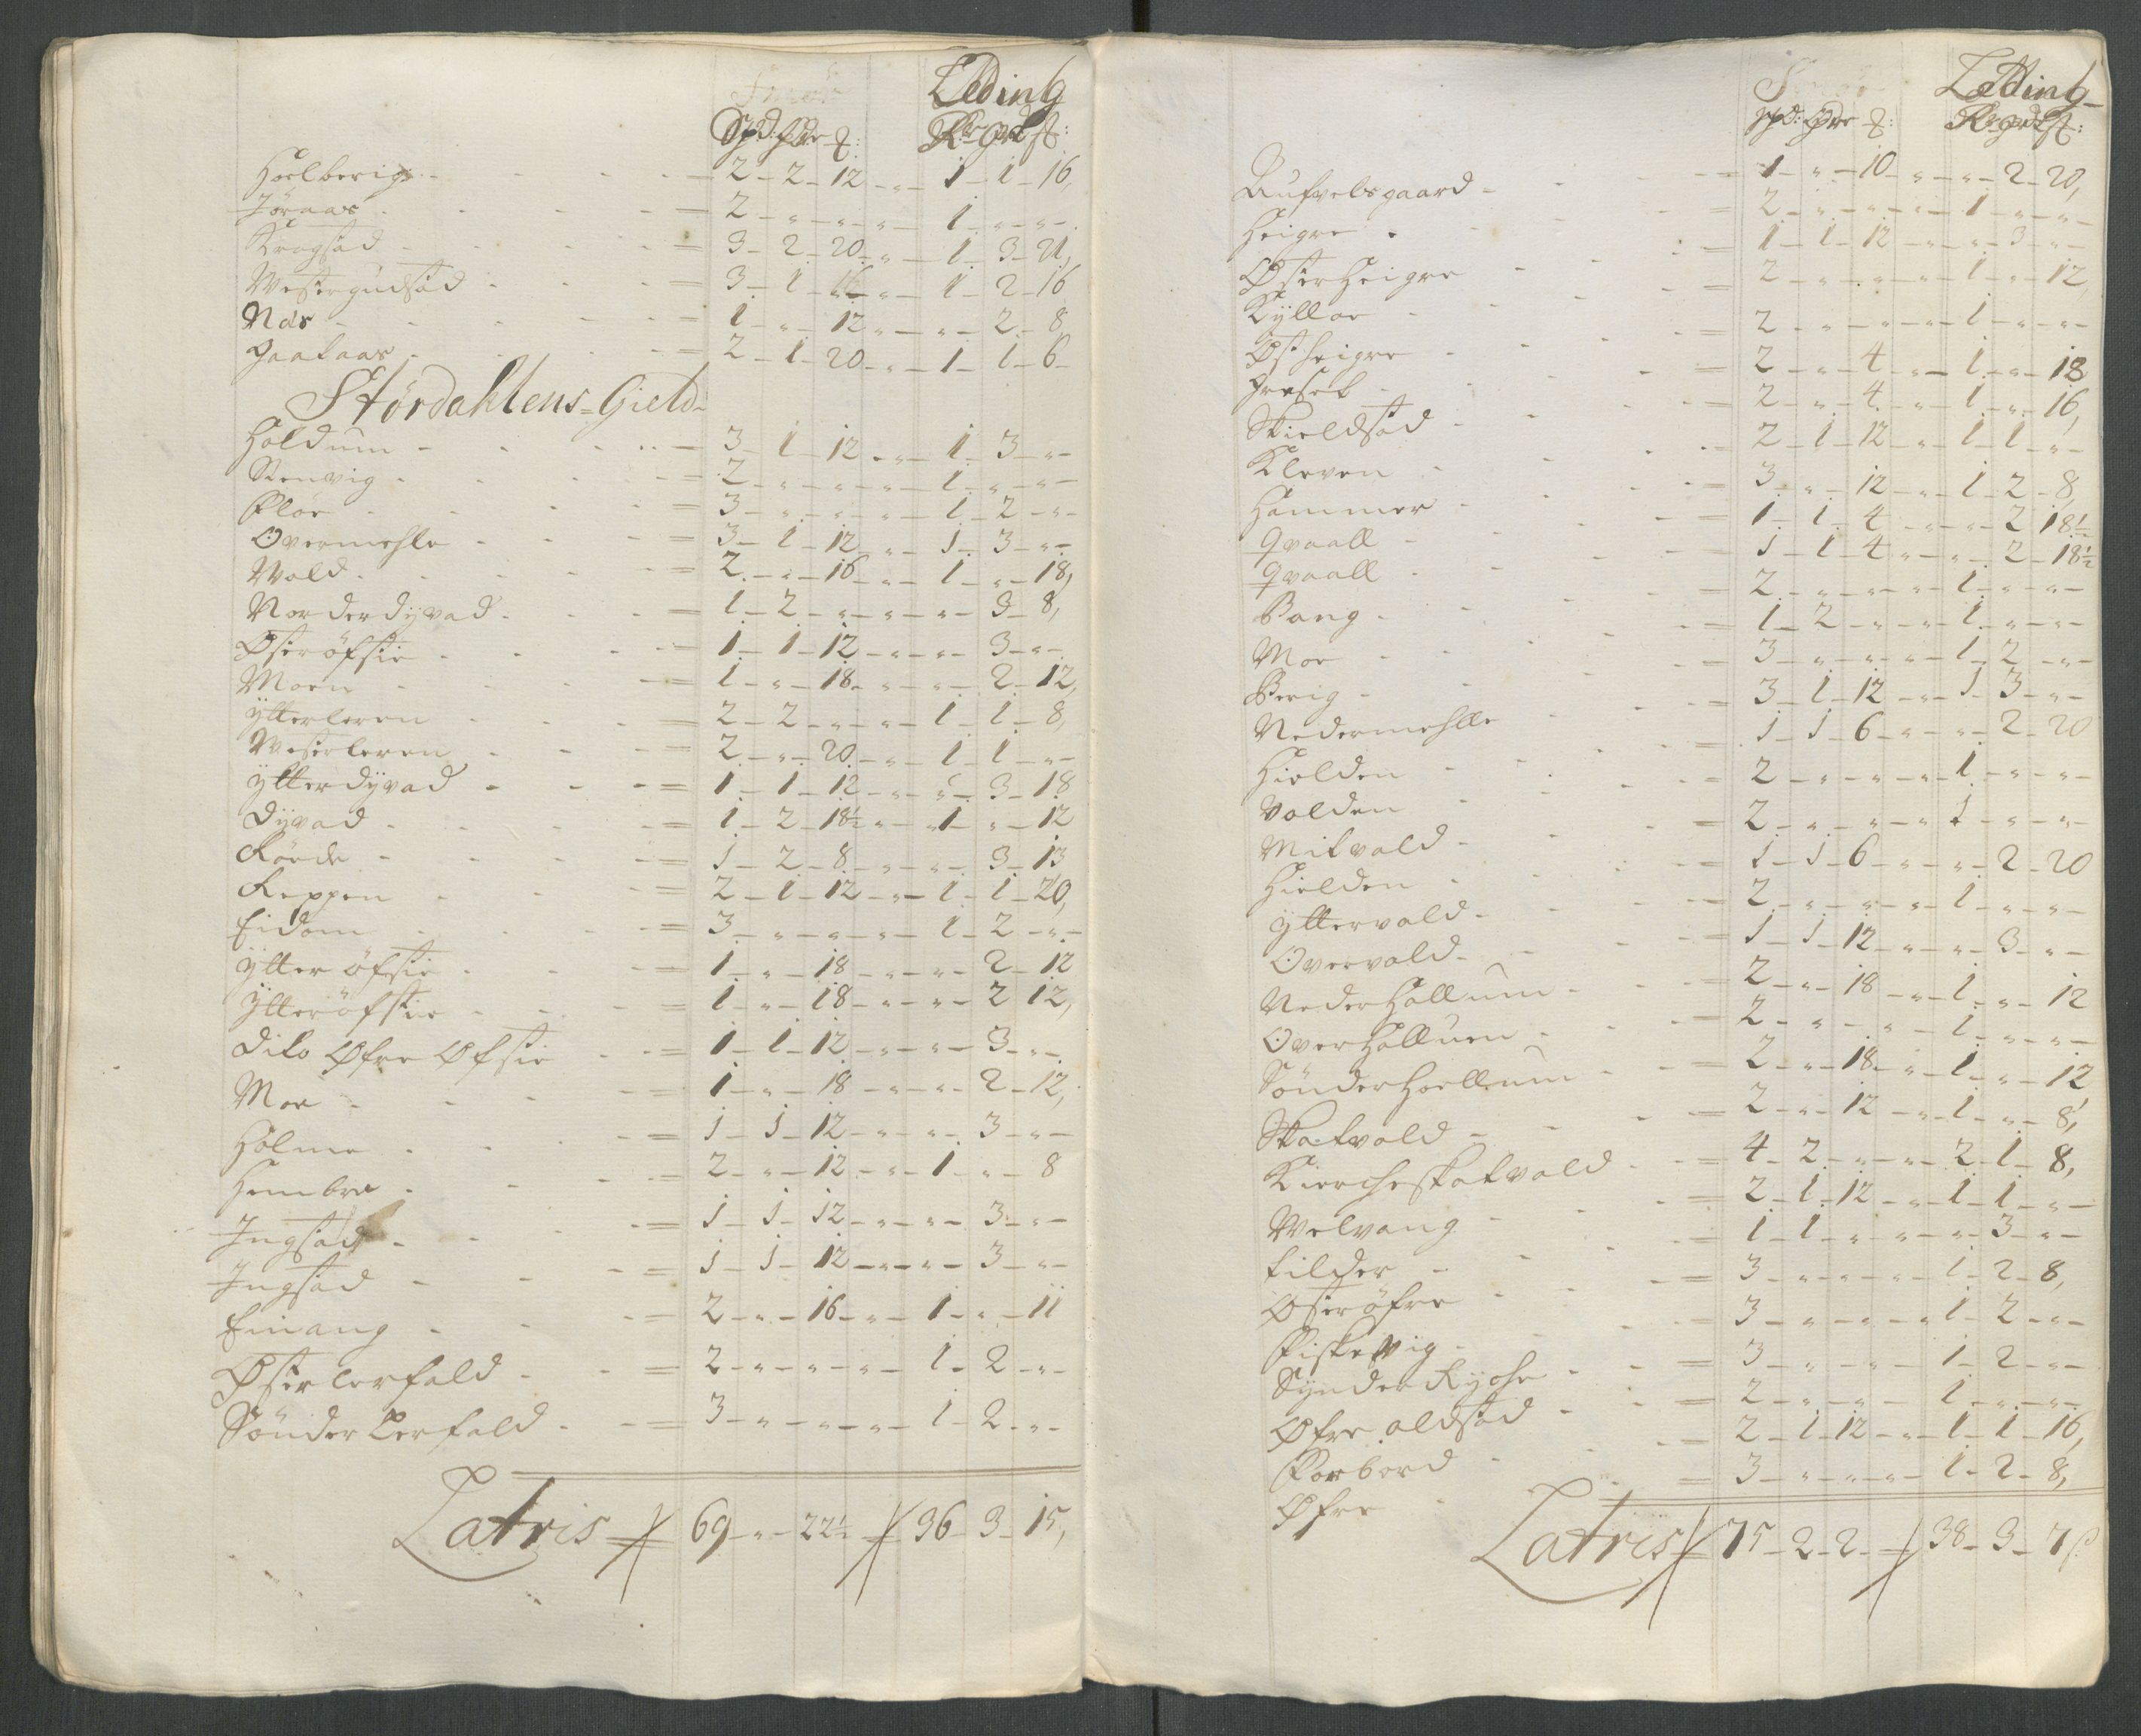 Leding
Spd: Øre ꝑ: Rdr ort ß:
Hoelberig - 2 - 2 - 12 - „ - 1 - 1 - 16,
Jöraas - 2 - „ - „ - „ - 1 - „ - „
Krogstad - 3 - 2 - 20 - „ - 1 - 3 - 21,
Westergudstad - 3 - 1 - 16 - „ - 1 - 2 - 16
Næs - 1 - „ - 12 - „ - „ - 2 - 8
- 2 - 1 - 20 - „ - 1 - 1 - 6 -
Stördahlens Gield
Holdum - 3 - 1 - 12 - „ - 1 - 3 - „
Stenvig - 2 - „ - „ - „ - 1 - „ - „
Floer - 3 - „ - „ - „ - 1 - 2 - „
Overmehle - 3 - 1 - 12 - „ - 1 - 3 - „
Wold - 2 - „ - 16 - „ - 1 - „ - 18,
Norderdyvad - 1 - 2 - „ - „ - „ - 3 - 8,
Øster öfstie - 1 - 1 - 12 - „ - „ - 3 - „
Moen - 1 - „ - 18 - „ - „ - 2 - 12,
Ytterleren - 2 - 2 - „ - „ - 1 - 1 - 8,
Westerleren - 2 - „ - 20 - „ - 1 - 1 - „
Ytterdyvad - 1 - 1 - 12 - „ - „ - 3 - 18
Dyvad - 1 - 2 - 18½ - „ - 1 - „ - 12
Röede - 1 - 2 - 8 - „ - „ - 3 - 13
Reppen - 2 - 1 - 12 - „ - 1 - 1 - 20,
Eidom - 3 - „ - „ - „ - 1 - 2 - „
Ytter öfstie - 1 - „ - 18 - „ - „ - 2 - 12
Ytteröfstie - 1 - „ - 18 - „ - „ - 2 12,
Dito Øfre Øfstie - 1 - 1 - 12 - „ - „ - 3 - „
Moe - 1 - „ - 18 - „ - „ - 2 - 12,
Holme - 1 - 1 - 12 - „ - „ - 3 - „
Hembre - 2 - „ - 12 - „ - 1 - „ - 8
Ingstad - 1 - 1 - 12 - „ - „ - 3 - „
Ingstad - 1 - 1 - 12 - „ - „ - 3 - „
Einang - 2 - „ - 16 - „ - 1 - „ - 11
Øster lerfald - 2 - „ - „ - „ - 1 - 2 - „
Sönder Lerfald - 3 - „ - „ - „ - 1 - 2 - „
Latris 69 - „ - 22½ 36 - 3 - 15,
Leding
Spd: Øre ꝑ: Rdr ort ß:
- 1 - „ - 10 - „ - „ - 2 - 20,
Heigre - 2 - „ - „ - „ - 1 - „ - „
Øster Heigre - 1 - 1 - 12 - „ - „ - 3 - „
Kylloe - 2 - „ - „ - „ - 1 - „ - 12,
Øst heigre - 2 - „ - „ - „ - 1 - „ - „
- 2 - „ - 4 - „ - 1 - „ - 18
Skieldstad - 2 - „ - 4 - „ - 1 - „ - 16,
Kleven - 2 - 1 - 12 - „ - 1 - 1 - „
Hammer - 3 - „ - 12 - „ - 1 - 2 - 8,
Qvaall - 1 - 1 - 4 - „ - „ - 2 18½
Qvaall - 1 - 1 - 4 - „ - „ - 2 - 18½
Bang - 2 - „ - „ - „ - 1 - „ - „
Moe - 1 - 2 - „ - „ - 1 - „ - „
Berig - 3 - „ - „ - „ - 1 - 2 - „
Nedermehlle - 3 - 1 - 12 - „ - 1 - 3 - „
Hielden - 1 - 1 - 6 - „ - „ - 2 - 20
Volden - 2 - „ - „ - „ - 1 - „ - „
Mitvold - 2 - „ - „ - „ - 1 - „ - „
Hielden - 1 - 1 - 6 - „ - „ - 2 - 20
Yttervold - 2 - „ - „ - „ - 1 - „ - „
Overvold - 1 - 1 - 12 - „ - „ - 3 - „
NederHollum - 2 - „ - 18 - „ - 1 - „ - 12
OverHollum - 2 - „ - „ - „ - 1 - „ - „
SönderHoellum - 2 - „ - 18 - „ - 1 - „ - 12
Skatvold - 2 - „ - 12 - „ - 1 - „ - 8,
Kiercheskatvold - 4 - 2 - „ - „ - 2 - 1 - 8,
Welvang - 2 - 1 - 12 - „ - 1 - 1 - „
Eilder - 1 - 1 - „ - „ - „ - 3 - „
Øster öfre - 3 - „ - „ - „ - 1 - 2 - 8,
Fiskevig - 3 - „ - „ - „ - 1 - 2 - „
Synder Ryche - 3 - „ - „ - „ - 1 - 2 - „
Øfre oldstad - 2 - „ - „ - „ - 1 - „ - „
Forbord - 2 - 1 - 12 - „ - 1 - 1 - 16,
Øfre - 3 - „ - „ - „ - 1 - 2 - 8,
Latris 75 - 2 - 2 - 38 - 3 - 7 ß